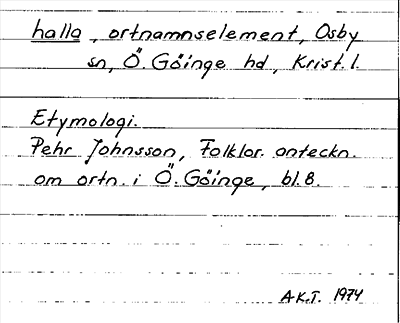 halla, ortnamnselement, Osby
sn, Ö. Göinge hd, Krist. l.
Etymologi.
Pehr Johnsson, Folklor. anteckn.
om ortn. i Ö. Göinge, bl. 8.
A.K.T. 1974